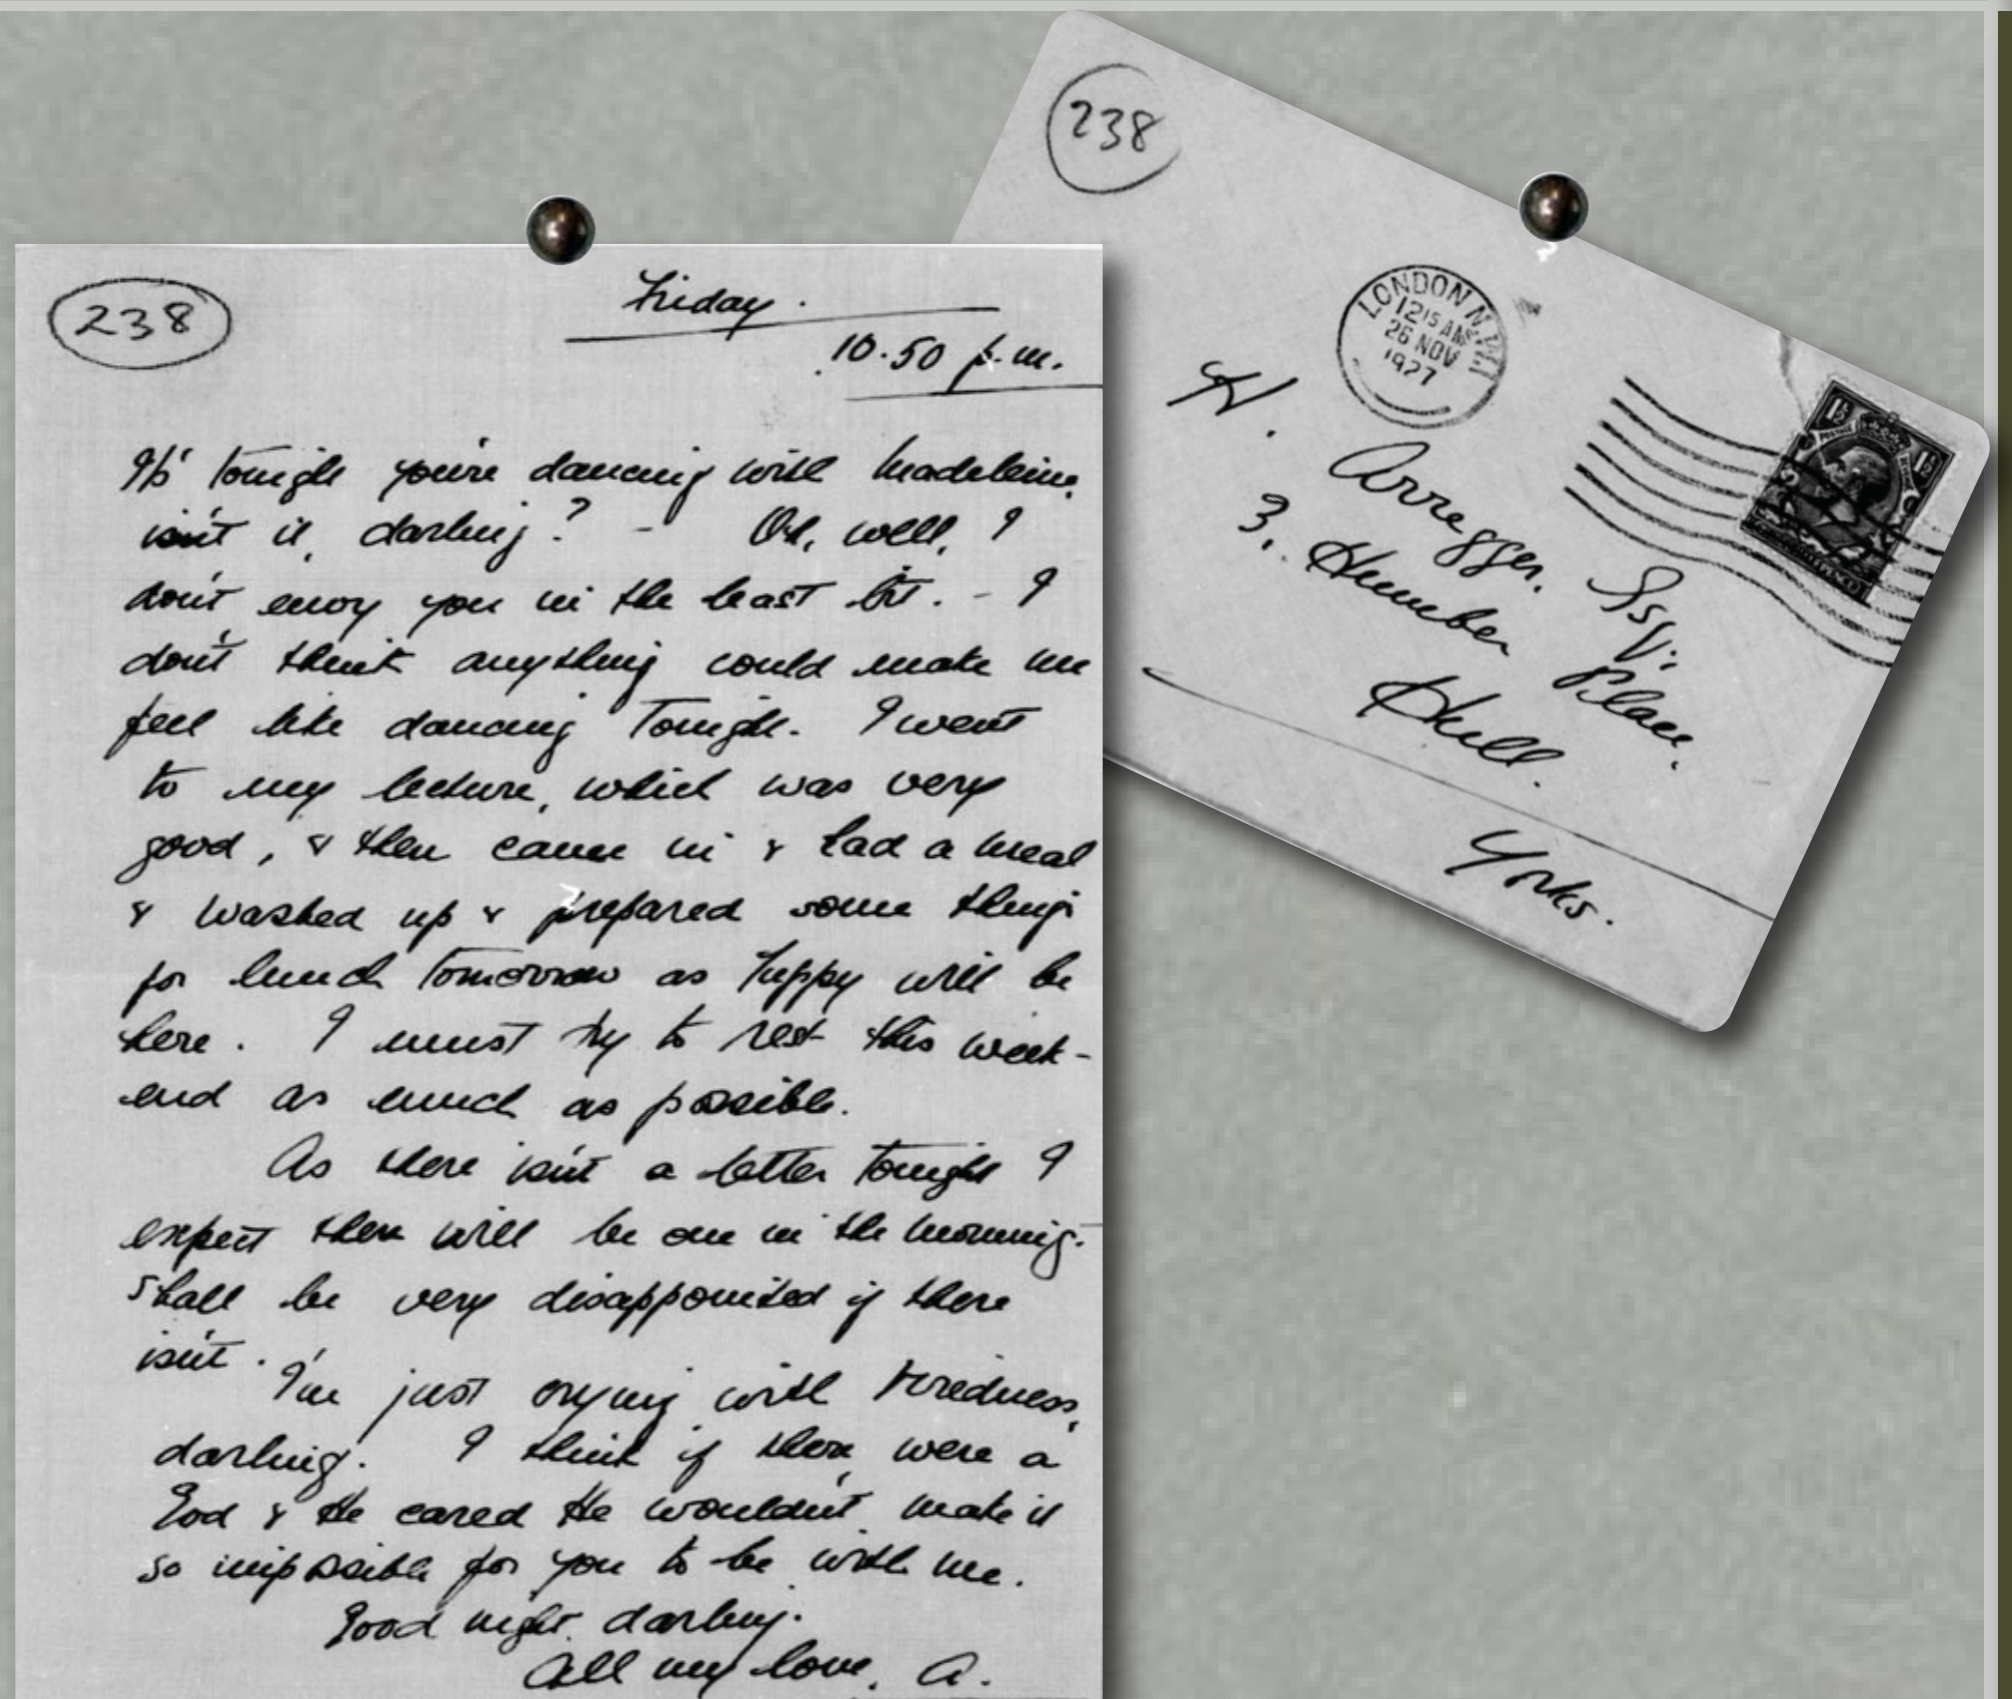 238
Friday.
10.50 p.m.
It's tonight you're dancing with Madeleine,
isn't it, darling? - Oh, well, I
don't envy you in the least bit. - I
don't think anything could make me
feel like dancing tonight. I went
to my lecture, which was very
good, & then came in & had a meal
& washed up & prepared some things
for lunch tomorrow as Tuppy will be
here. I must try to rest this week-
end as much as possible.
As there isn't a letter tonight I
expect there will be one in the morning.
Shall be very disappointed if there
isn't.
I'm just crying with tiredness,
darling. I think if there were a
God & He cared He wouldn't make it
so impossible for you to be with me.
Good night, darling.
All my love, A.
238
LONDON N.W.1
12 15 AM
26 NOV
1927
H. Arregger, Esq.
3, Humber Place,
Hull.
Yorks.
1½ 1½
POSTAGE